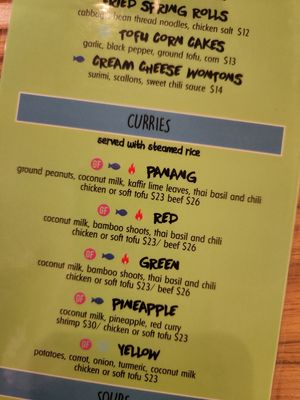 FRIED SPRING ROLLS
cabbage, bean thread noodles, chicken salt $12
TOFU CORN CAKES
garlic, black pepper, ground tofu, corn $13
CREAM CHEESE WONTONS
surimi, scallons, sweet chili sauce $14
CURRIES
served with steamed rice
GF PANANG
ground peanuts, coconut milk, kaffir lime leaves, thai basil and chili
chicken or soft tofu $23 beef $26
GF RED
coconut milk, bamboo shoots, thai basil and chili
chicken or soft tofu $23/ beef $26
GF GREEN
coconut milk, bamboo shoots, thai basil and chili
chicken or soft tofu $23/ beef $26
GF PINEAPPLE
coconut milk, pineapple, red curry
shrimp $30/ chicken or soft tofu $23
GF YELLOW
potatoes, carrot, onion, turmeric, coconut milk
chicken or soft tofu $23
SOUPS